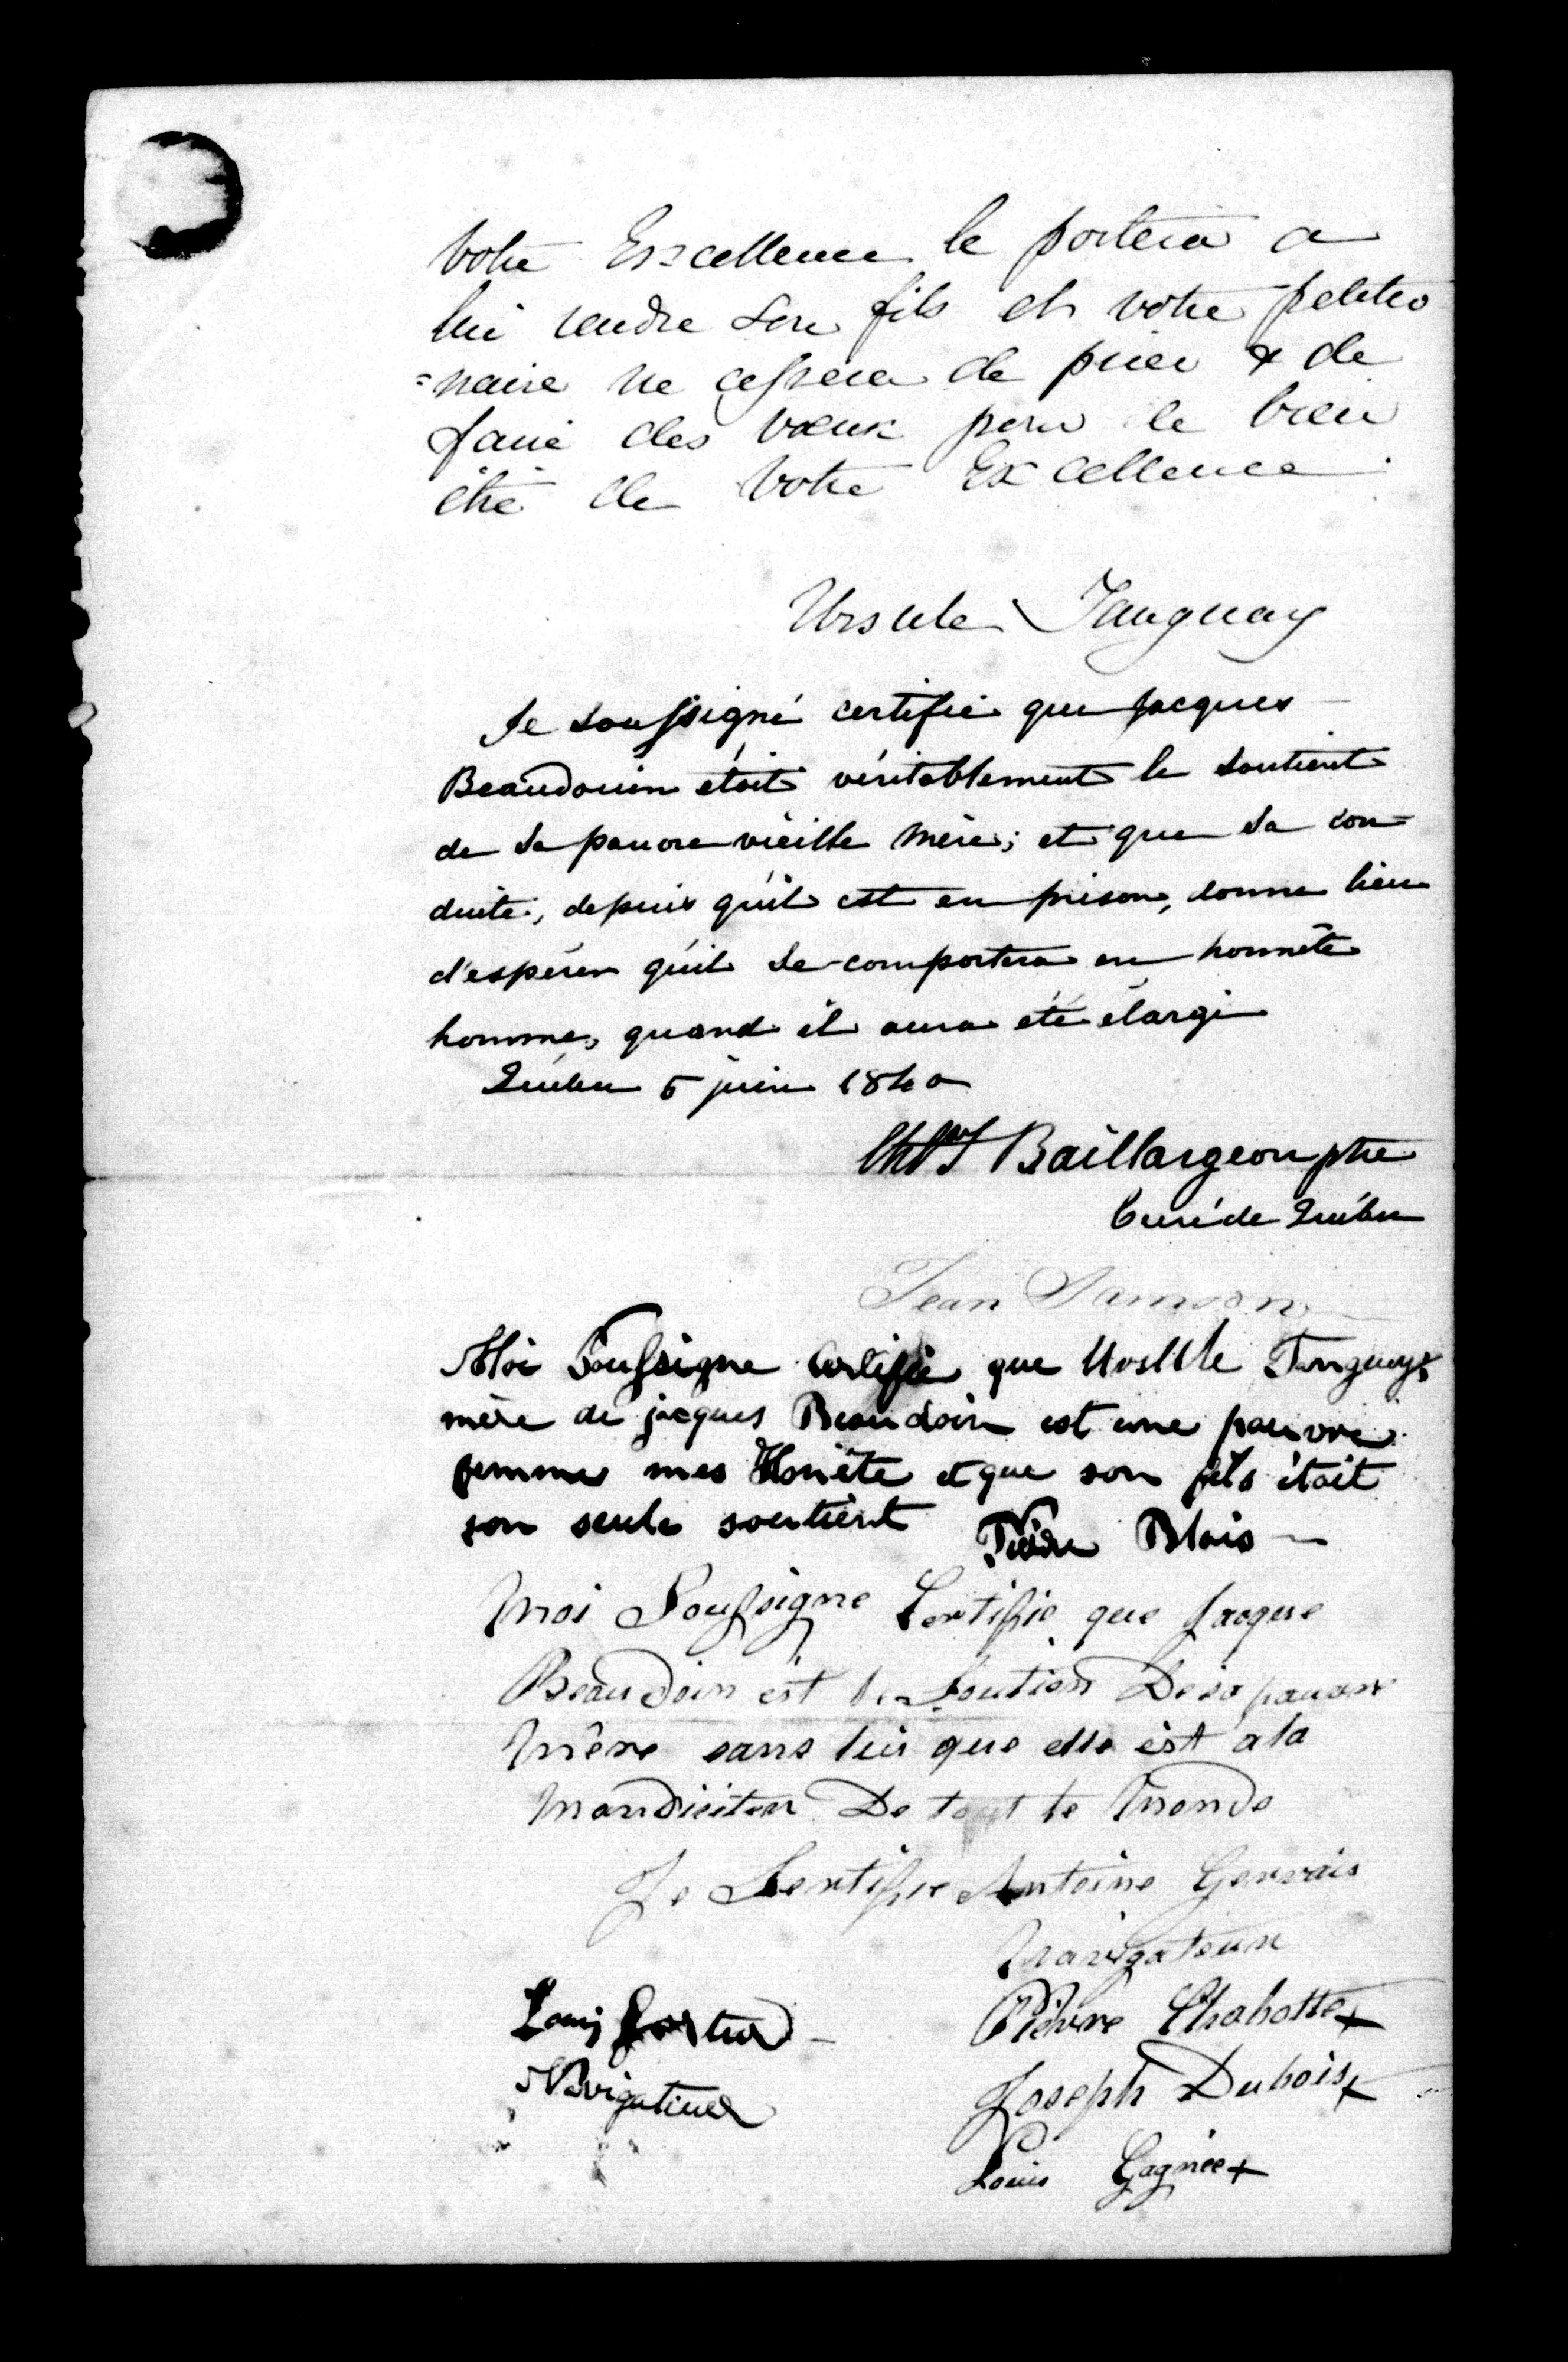 Votre Excellence le portera a
lui rendre son fils et votre petitio
=naire ne cessera de prier & de
faire des vœux pour le bien
être de Votre Excellence.
Ursule Tanguay
Je soussigné certifie que Jacques
Beaudouin était véritablement le soutient
de sa pauvre vieille mère; et que sa con=
duite, depuis qu'il est en prison, donne lieu
d'espérer qu'il se comportera en honnête
homme, quand il aura été élargi
Québec 5 juin 1840
Baillargeon ptre
Curé de Québec
Jean Samson
Moi Soussigne Certifie que Ursule Tanguay
mère de jacques Beaudoin est une pauvre
femme mes Honête et que son fils était
son seule soutient Pierre Blais
Moi Soussigne Certifie que Jacque
Beaudoin est le Soutien De sa pauvre
Mêre sans lui que elle est a la
Mandiciter De tout le Monde
Je Sertifie Antoine Gervais
Navigateur
Louis
Navigateur
Pierre Chabotte +
Joseph Dubois +
Louis Gagnée +